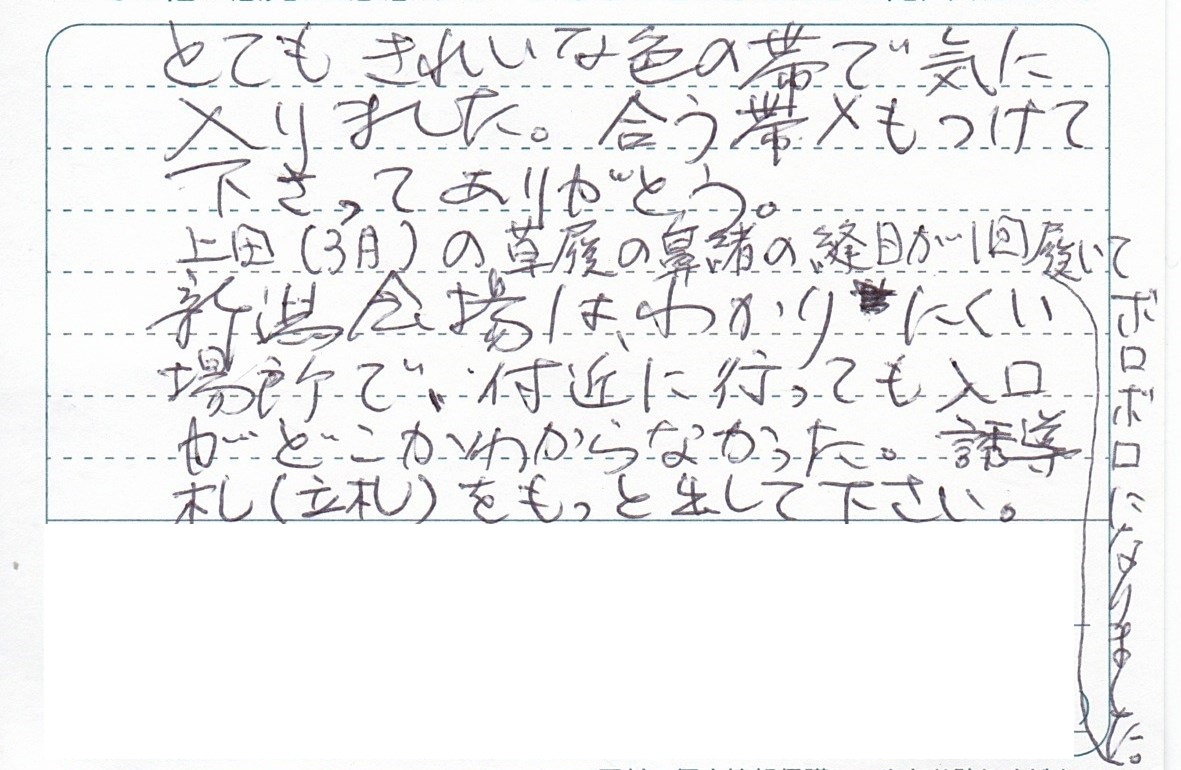 とてもきれいな色の帯で気に
入りました。合う帯〆もつけて
下さってありがとう。
上田(3月)の草履の鼻緒の縫目が1回履いて
ボロボロになりました。
新潟会場は、わかりにくい
場所で、付近に行っても入口
がどこかわからなかった。誘導
札(立札)をもっと出して下さい。